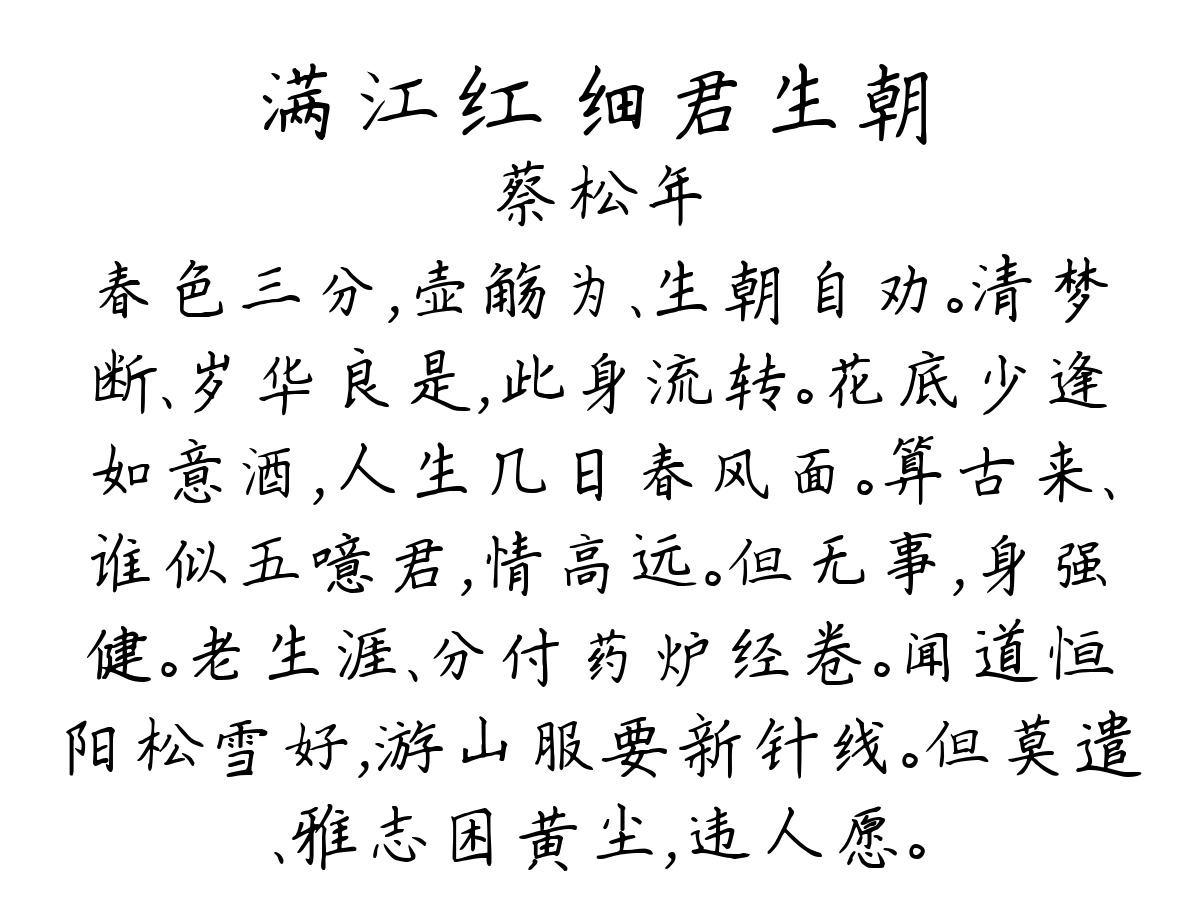 满江红 细君生朝
蔡松年
春色三分,壶觞为、生朝自劝。清梦
断、岁华良是,此身流转。花底少逢
如意酒,人生几日春风面。算古来、
谁似五噫君,情高远。但无事,身强
健。老生涯、分付药炉经卷。闻道恒
阳松雪好,游山服要新针线。但莫遣
、雅志困黄尘,违人愿。